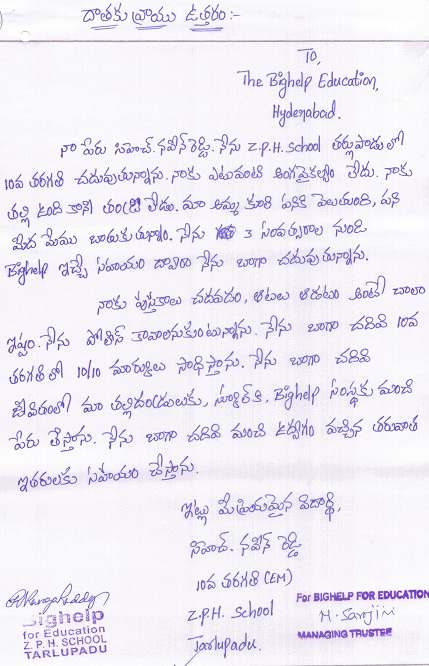 దాతకు వ్రాయు ఉత్తరం:-
To,
The Bighelp Education,
Hyderabad.
నా పేరు సిహెచ్. నవీన్ రెడ్డి. నేను Z.P.H. School తర్లుపాడులో
10వ తరగతి చదువుతున్నాను. నాకు ఎటువంటి అంగవైకల్యం లేదు. నాకు
తల్లి ఉంది కానీ తండ్రి లేడు. మా అమ్మ కూలి పనికి వెలుతుంది, పని
మీద మేము బ్రతుకుతున్నాం. నేను 3 సంవత్సరాల నుండి
Bighelp ఇచ్చే సహాయం ద్వారా నేను బాగా చదువుతున్నాను.
నాకు పుస్తకాలు చదవడం, ఆటలు ఆడటం అంటే చాలా
ఇష్టం. నేను పోలీస్ కావాలనుకుంటున్నాను. నేను బాగా చదివి 10వ
తరగతి లో 10/10 మార్కులు సాధిస్తాను. నేను బాగా చదివి
జీవితంలో మా తల్లిదండ్రులకు, స్కూల్ కి, Bighelp సంస్థకు మంచి
పేరు తెస్తాను. నేను బాగా చదివి మంచి ఉద్యోగం వచ్చిన తరువాత
ఇతరులకు సహాయం చేస్తాను.
ఇట్లు మీ ప్రియమైన విద్యార్థి,
సిహెచ్. నవీన్ రెడ్డి
10వ తరగతి (EM)
Z.P.H. School
Tarlupadu.
Bighelp
for Education
Z. P. H. SCHOOL
TARLUPADU
For BIGHELP FOR EDUCATION
M. Sarojini
MANAGING TRUSTEE